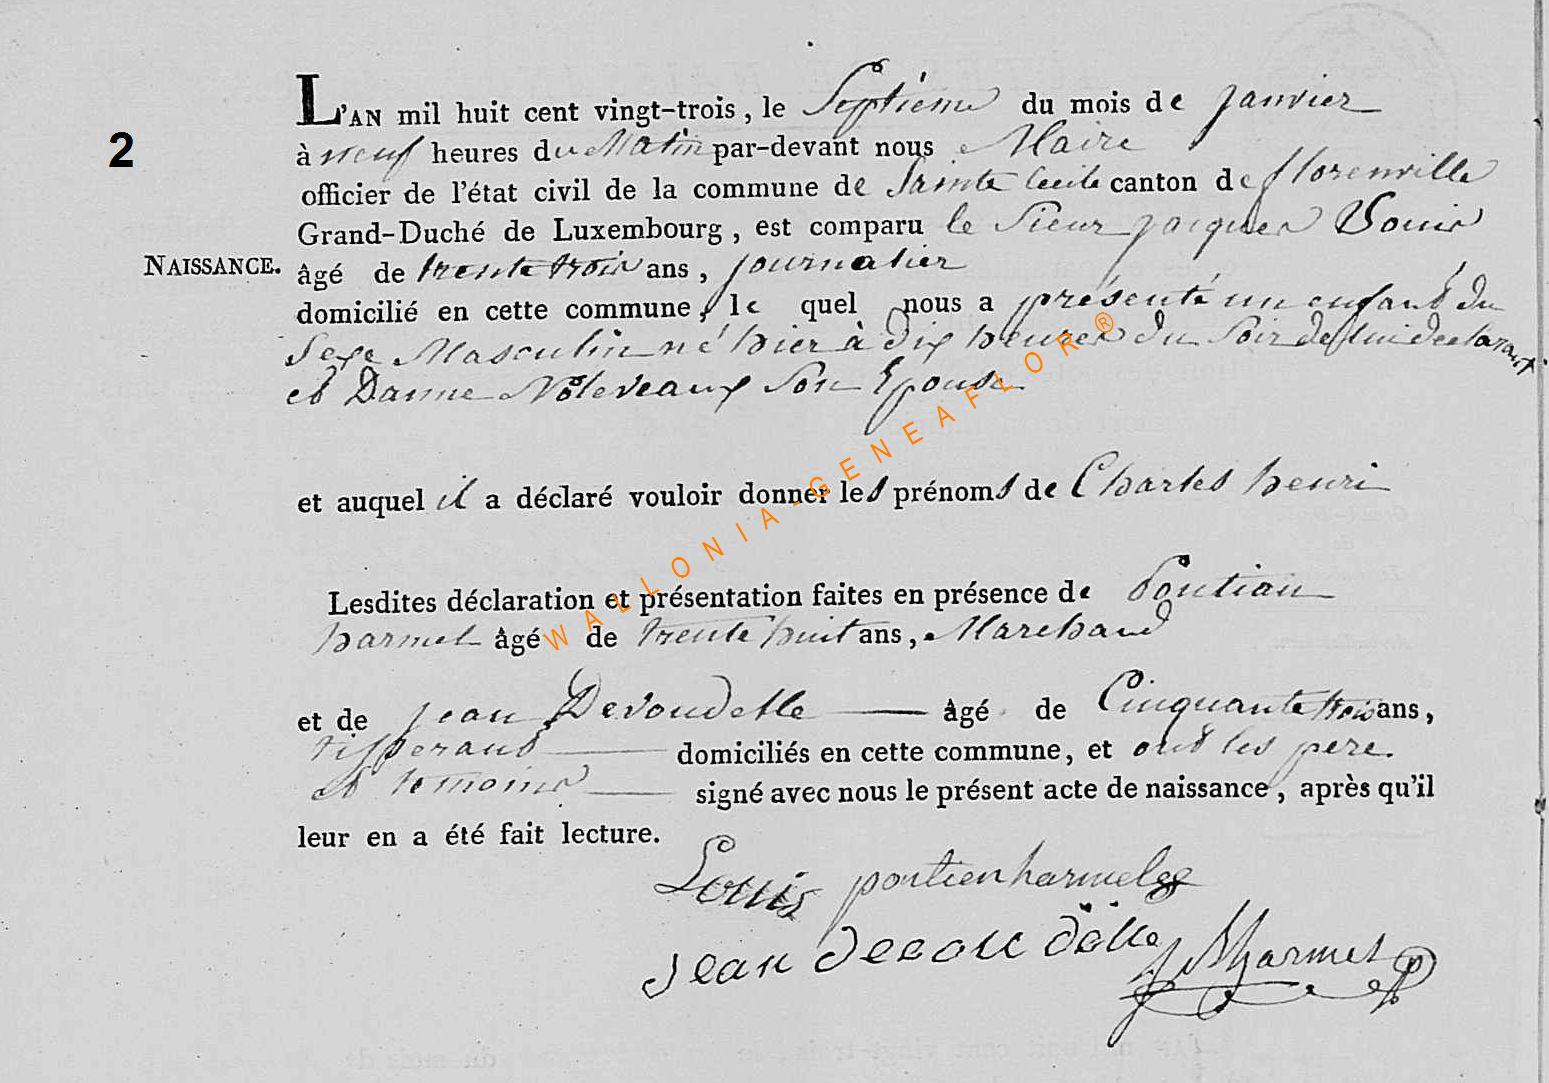 2
L'AN mil huit cent vingt-trois, le Septieme du mois de janvier
à neuf heures du Matin par-devant nous Maire
officier de l'état civil de la commune de Sainte Cecile canton de florenville
Grand-Duché de Luxembourg, est comparu le Sieur jacques Louis
NAISSANCE.
âgé de trente trois ans, journalier
domicilié en cette commune, le quel nous a présenté un enfant du
Sexe Masculin né hier à dix heures du Soir de lui declarant
et Danne Noleveaux Son Epouse
et auquel il a déclaré vouloir donner les prénoms de Charles henri
Lesdites déclaration et présentation faites en présence de Pontian
harmel âgé de trente huit ans, Marchand
et de jean Devoudelle âgé de Cinquante trois ans,
tisserand domiciliés en cette commune, et ont les pere
et temoins signé avec nous le présent acte de naissance, après qu'il
leur en a été fait lecture.
Louis pontien harmel
jean devou delle Harmel
WALLONIA-GENEAFLOR ®